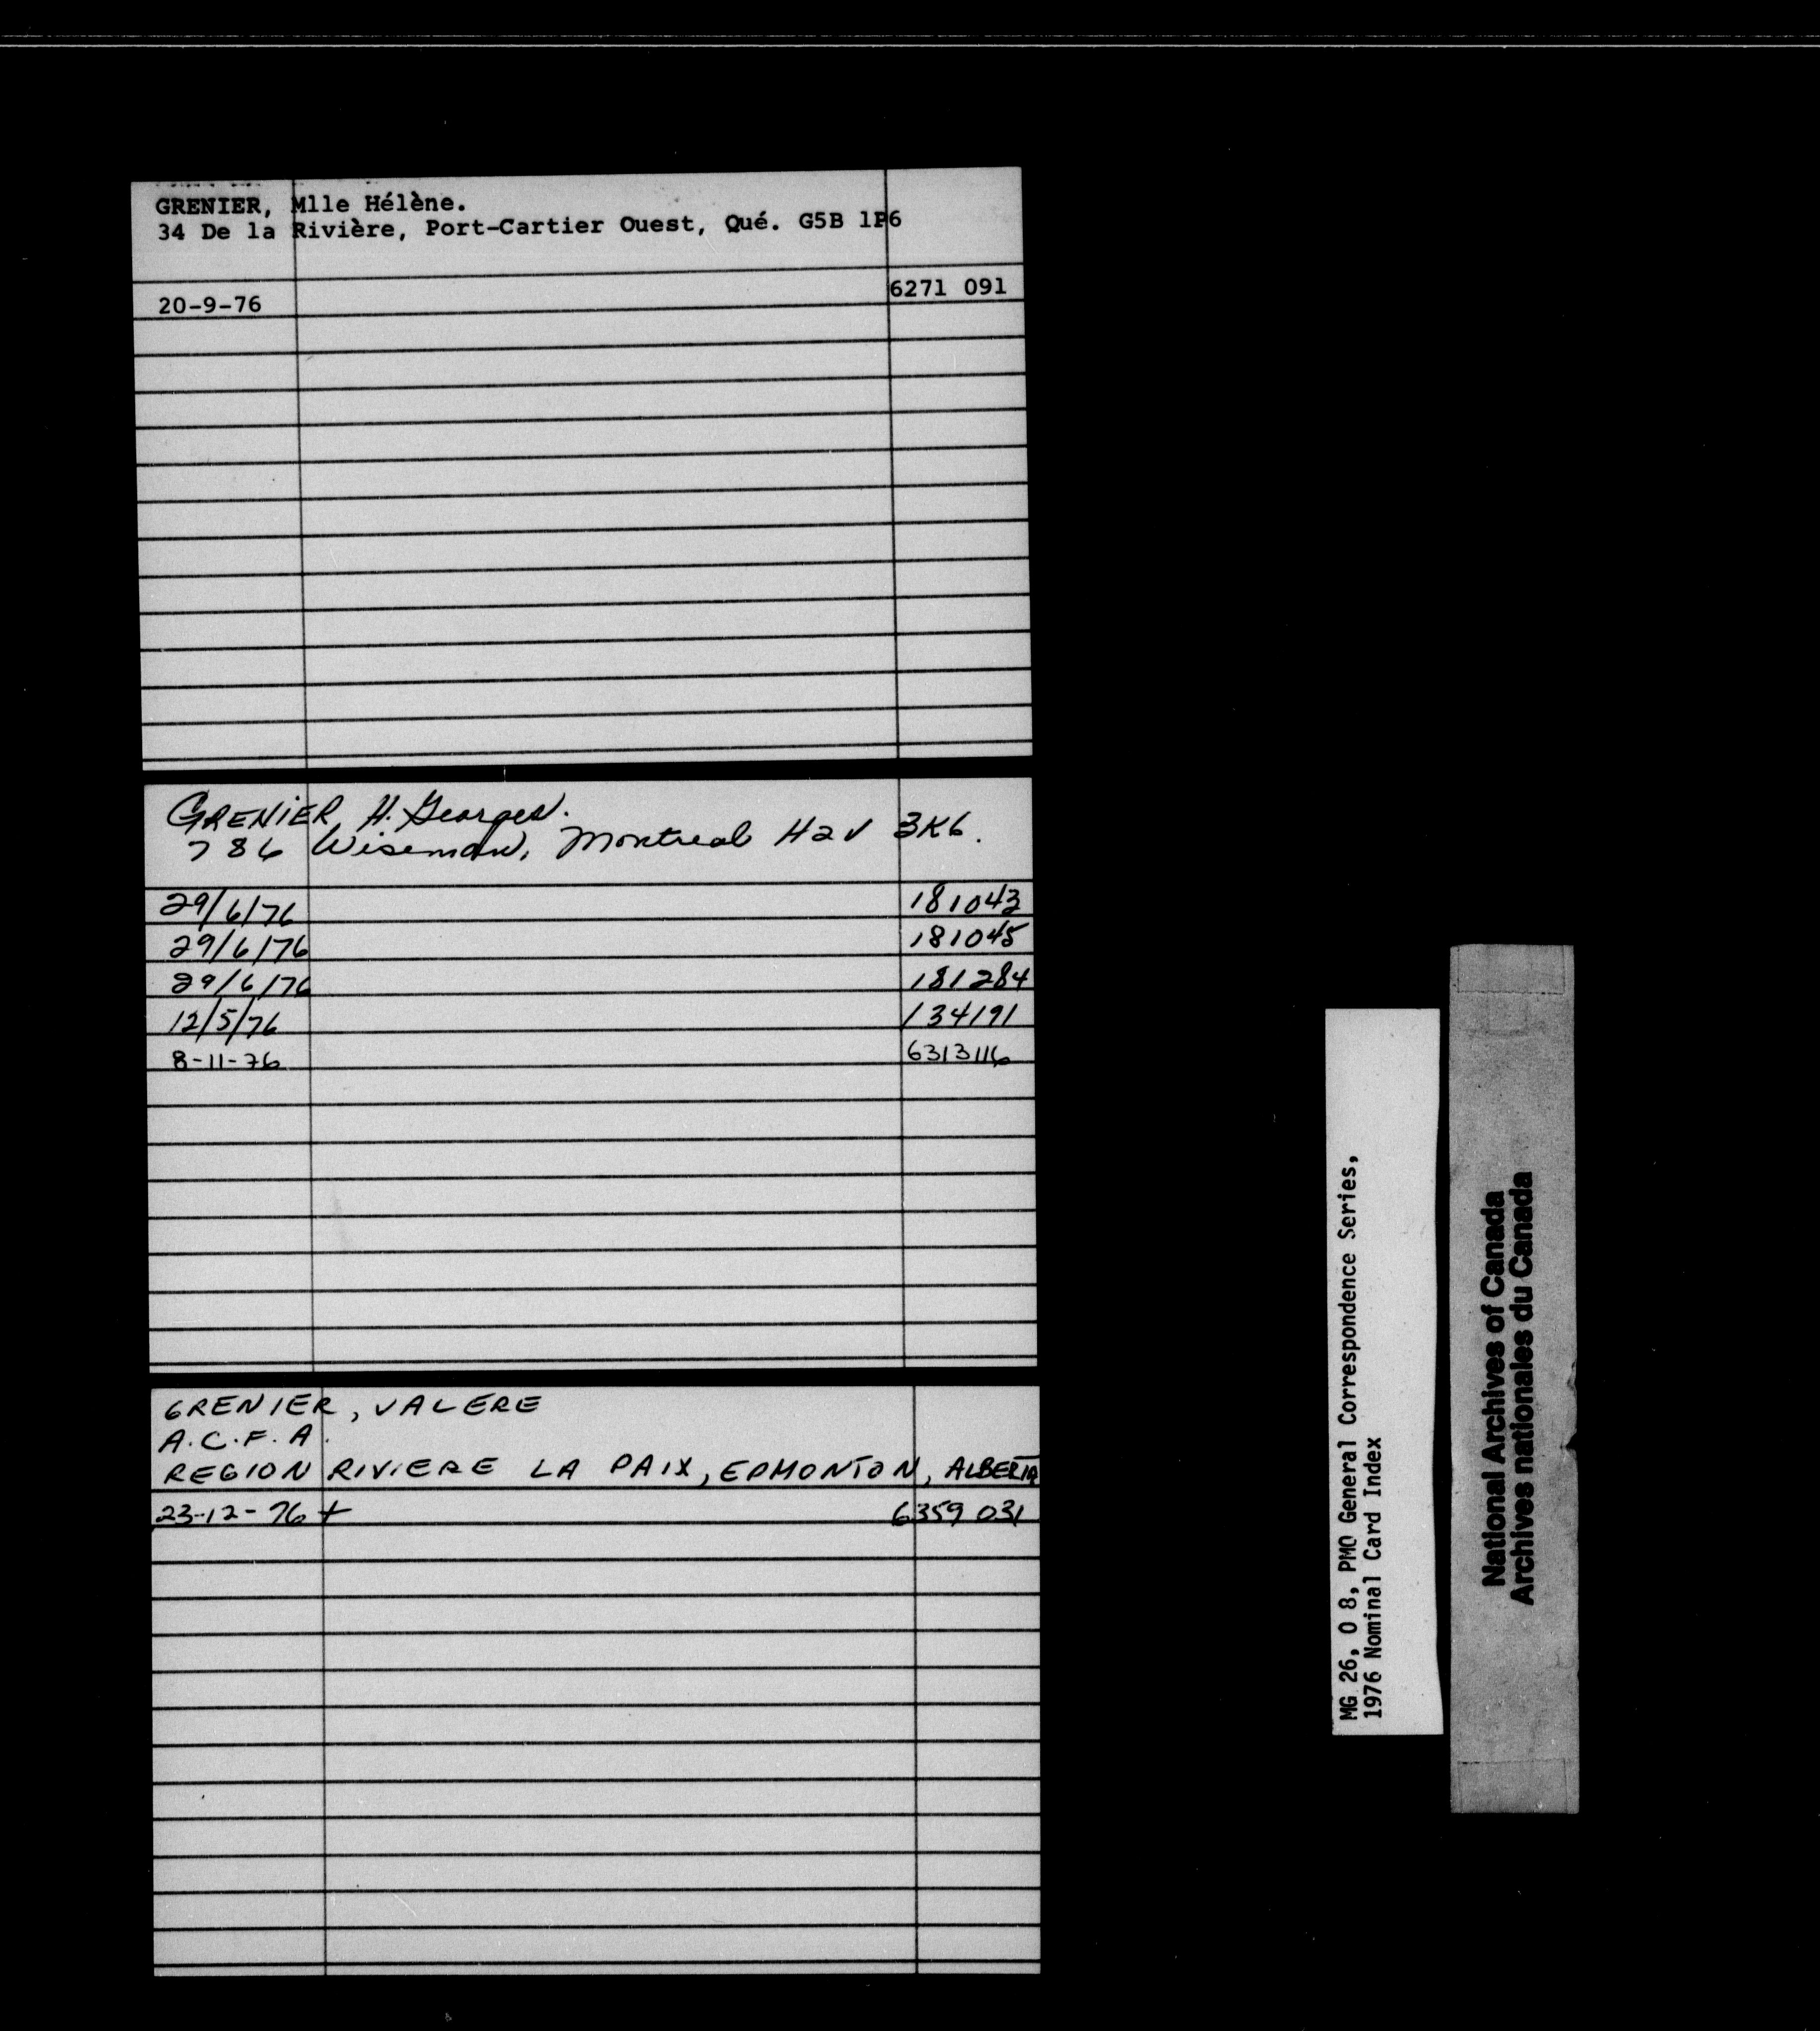 GRENIER, Mlle Hélène.
34 De la Rivière, Port-Cartier Ouest, Qué. G5B 1P6
20-9-76 6271 091
GRENIER, H. Georges.
786 Wiseman, Montreal H2V 3K6.
29/6/76 181043
29/6/76 181045
29/6/76 181284
12/5/76 134191
8-11-76 6313116
GRENIER, VALERE
A.C.F.A.
REGION RIVIERE LA PAIX, EDMONTON, ALBERTA
23-12-76 + 6359 031
MG 26, O 8, PMO General Correspondence Series,
1976 Nominal Card Index
National Archives of Canada
Archives nationales du Canada